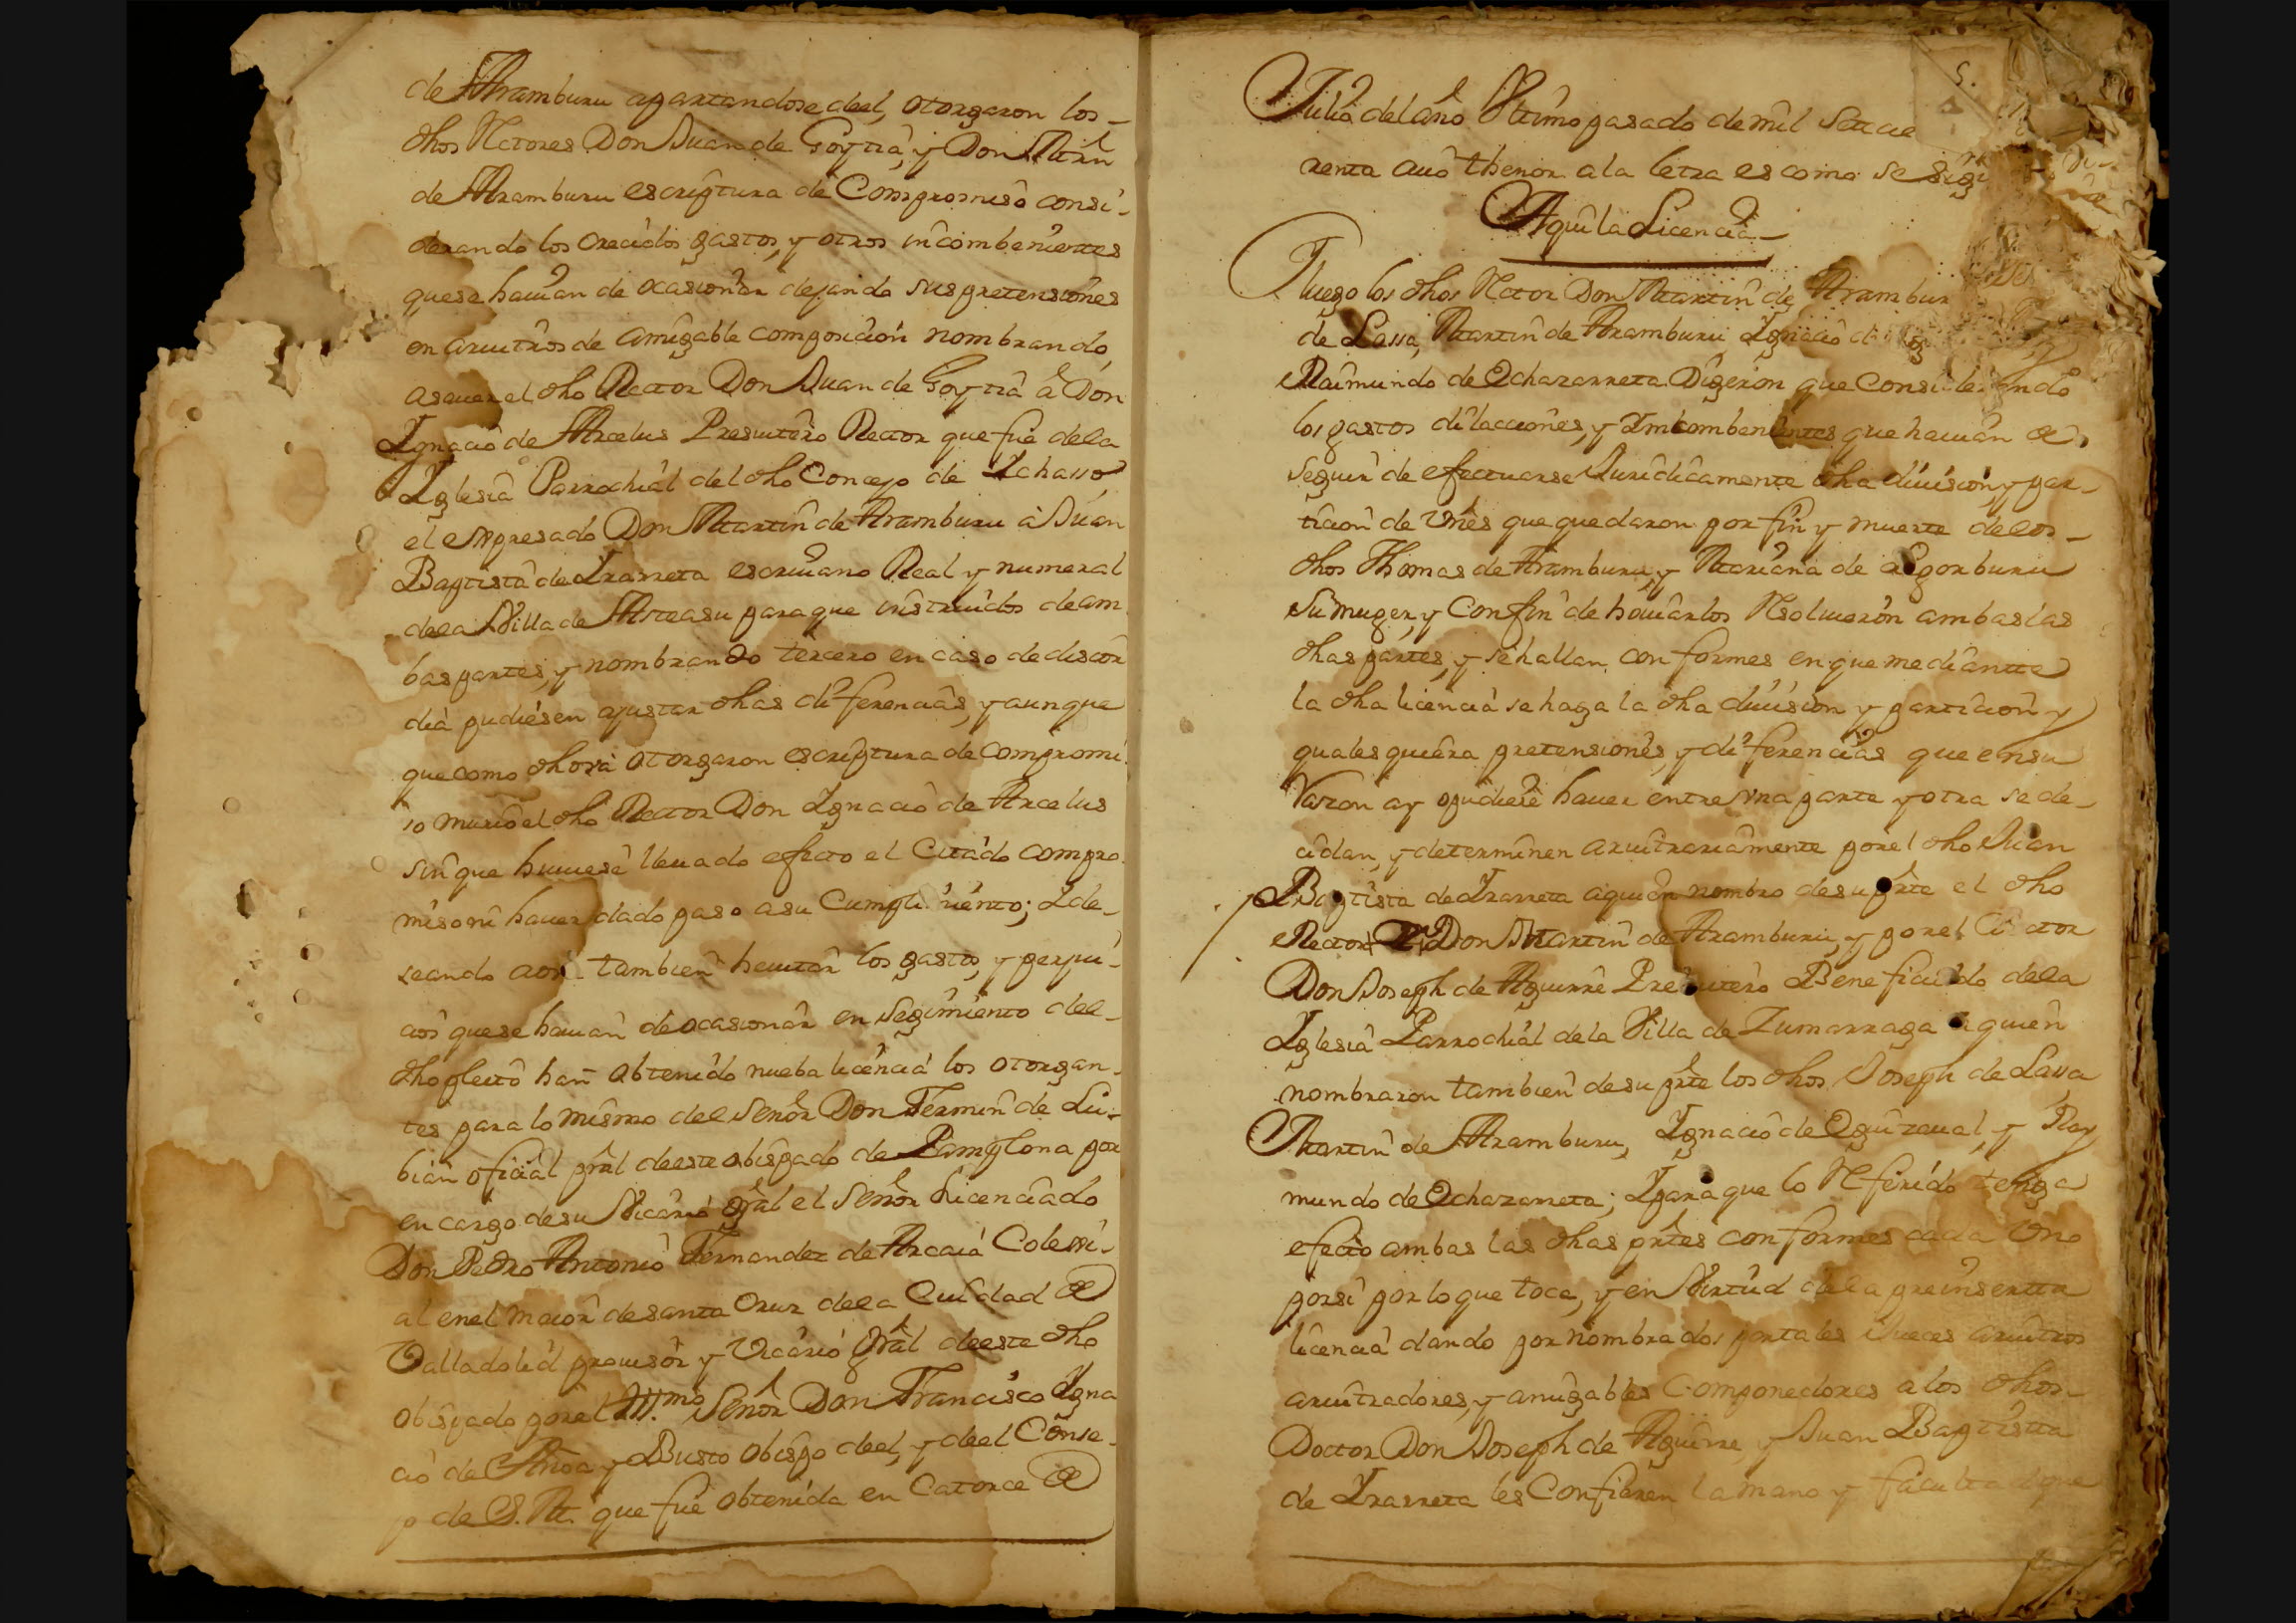 de Aramburu apartandose deel, otorgaron los
dhos Rctores Don Juan de Goytia, y Don Mrn
de Aramburu escriptura de Compromiso consi-
derando los crecidos gastos, y otros incombenientes
que se hauian de ocasionar dejando sus pretensiones
en aruitros de amigable composicion nombrando,
asauer el dho Rector Don Juan de Goytia à Don
Ygnacio de Arcelus Presuitero Rector que fue dela
Yglesia Parrochial del dho Concejo de Ychasso
el expresado Don Martin de Aramburu à Juan
Baptista de Yrarreta escriuano Real y numeral
dela Villa de Asteasu para que instruidos de am
bas partes, y nombrando tercero en caso de discor
dia pudiesen ajustar dhas diferencias, y aunque
que como dho va otorgaron escriptura de compromi
so murio el dho Rector Don Ygnacio de Arcelus
sin que huuiese lleuado efecto el Citado compro
miso ni hauer dado paso a su Cumpli miento; Y de-
seando aora tambien heuitar los gastos, y perjui-
cios que se hauian de ocasionar en Seguimiento deel-
dho pleito han obtenido nueba licencia los otorgan-
tes para lo mismo del Señor Don Fermin de Lu-
bian oficial prãl de este obispado de Pamplona por
en cargo de su Vicario gral el Señor Licenciado
Don Pedro Antonio Fernandez de Arcaia Colexi-
al enel maior de santa Cruz dela Ciudad de
Valladolid prouisor y Vicario Gral deeste dho
obispado por el Yll.mo Señor Don Francisco Ygna
cio de Añoa y Busto obispo deel, y deel Conse-
jo de S. M. que fue obtenida en Catorce de
5.
Julio del año Vltimo pasado de mil Setecie
renta cuio thenor a la letra es como se sigue
Aqui la Licencia
Y luego los dhos Rctor Don Martin de Arambur
de Lassa, Martin de Aramburu Ygnacio de
Raimundo de Ochazarreta Digeron que Considerando
los gastos dilacciones, y Imcombenientes que hauian de
seguir de efectuarse Juridicamente dha diuision y par-
ticion de vnes que quedaron por fin y muerte de los
dhos Thomas de Aramburu, y Mariana de Egorburu
Su muger, y Con fin de heuitarlos Resoluieron ambas las
dhas partes, y se hallan conformes en que mediantte
la dha licencia se haga la dha diuision y particion y
quales quiera pretensiones, y diferencias que en su
Vazon ay o pudiese hauer entre vna parte y otra se de-
cidan, y determinen aruitrariamente por el dho Juan
Baptista de Yrarreta a quien nombro de su prte el dho
Rector Don Martin de Aramburu, y por el Doctor
Don Joseph de Aguirre Presuitero Beneficiado dela
Yglesia Parrochial de la Villa de Zumarraga a quien
nombraron tambien de su prte los dhos Joseph de Lassa
Martin de Aramburu, Ygnacio de Oquizaual, y Ray
mundo de Ochazarreta; Y para que lo Referido tenga
efecto ambas las dhas prtes conformes cada vno
por si por lo que toca, y en Virtud dela preinsertta
licencia dando por nombrados por tales Jueces aruitros
aruitradores, y amigables Componedores a los dhos
Doctor Don Joseph de Aguirre, y Juan Baptistta
de Yrarreta les Confieren la mano y facultad que